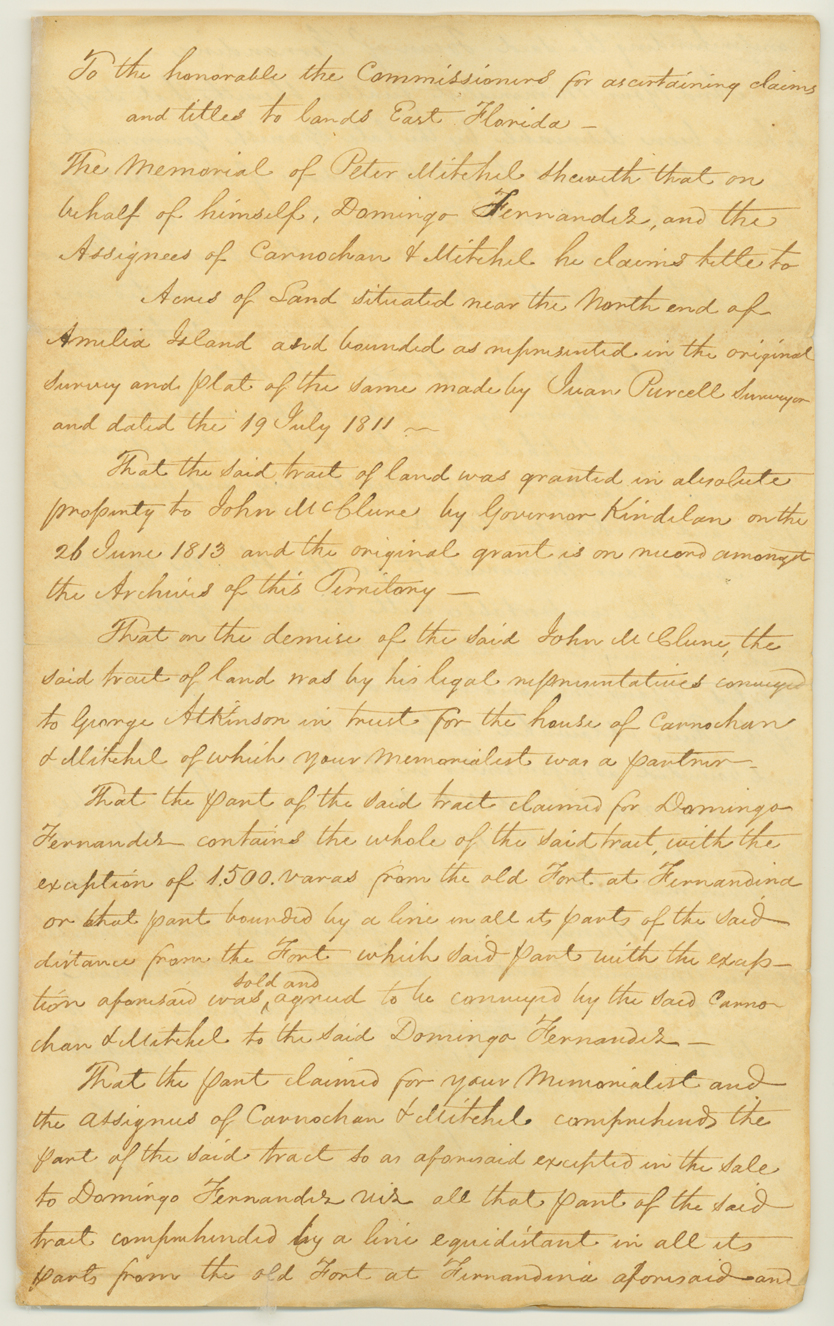 To the honorable the Commissioners for ascertaining claims
and titles to lands East Florida —
The Memorial of Peter Mitchel sheweth that on
behalf of himself, Domingo Fernandez, and the
Assignees of Carnochan & Mitchel he claims title to
Acres of Land situated near the North end of
Amelia Island and bounded as represented in the original
survey and plat of the same made by Juan Purcell Surveyor
and dated the 19 July 1811 —
That the said tract of land was granted in absolute
property to John McClure by Governor Kindelan on the
26 June 1813 and the original grant is on record amongst
the Archives of this Territory —
That on the demise of the said John McClure, the
said tract of land was by his legal representatives conveyed
to George Atkinson in trust for the house of Carnochan
& Mitchel of which your Memorialist was a partner —
That the part of the said tract claimed for Domingo
Fernandez contains the whole of the said tract, with the
exception of 1.500. varas from the old Fort at Fernandina
or that part bounded by a line in all its parts of the said
distance from the Fort which said part with the excep-
sold and
tion aforesaid was ‸ agreed to be conveyed by the said Carno-
chan & Mitchel to the said Domingo Fernandez —
That the part claimed for your Memorialist and
the assignees of Carnochan & Mitchel comprehends the
part of the said tract so as aforesaid excepted in the sale
to Domingo Fernandez viz all that part of the said
tract comprehended by a line equidistant in all its
parts from the old Fort at Fernandina aforesaid and